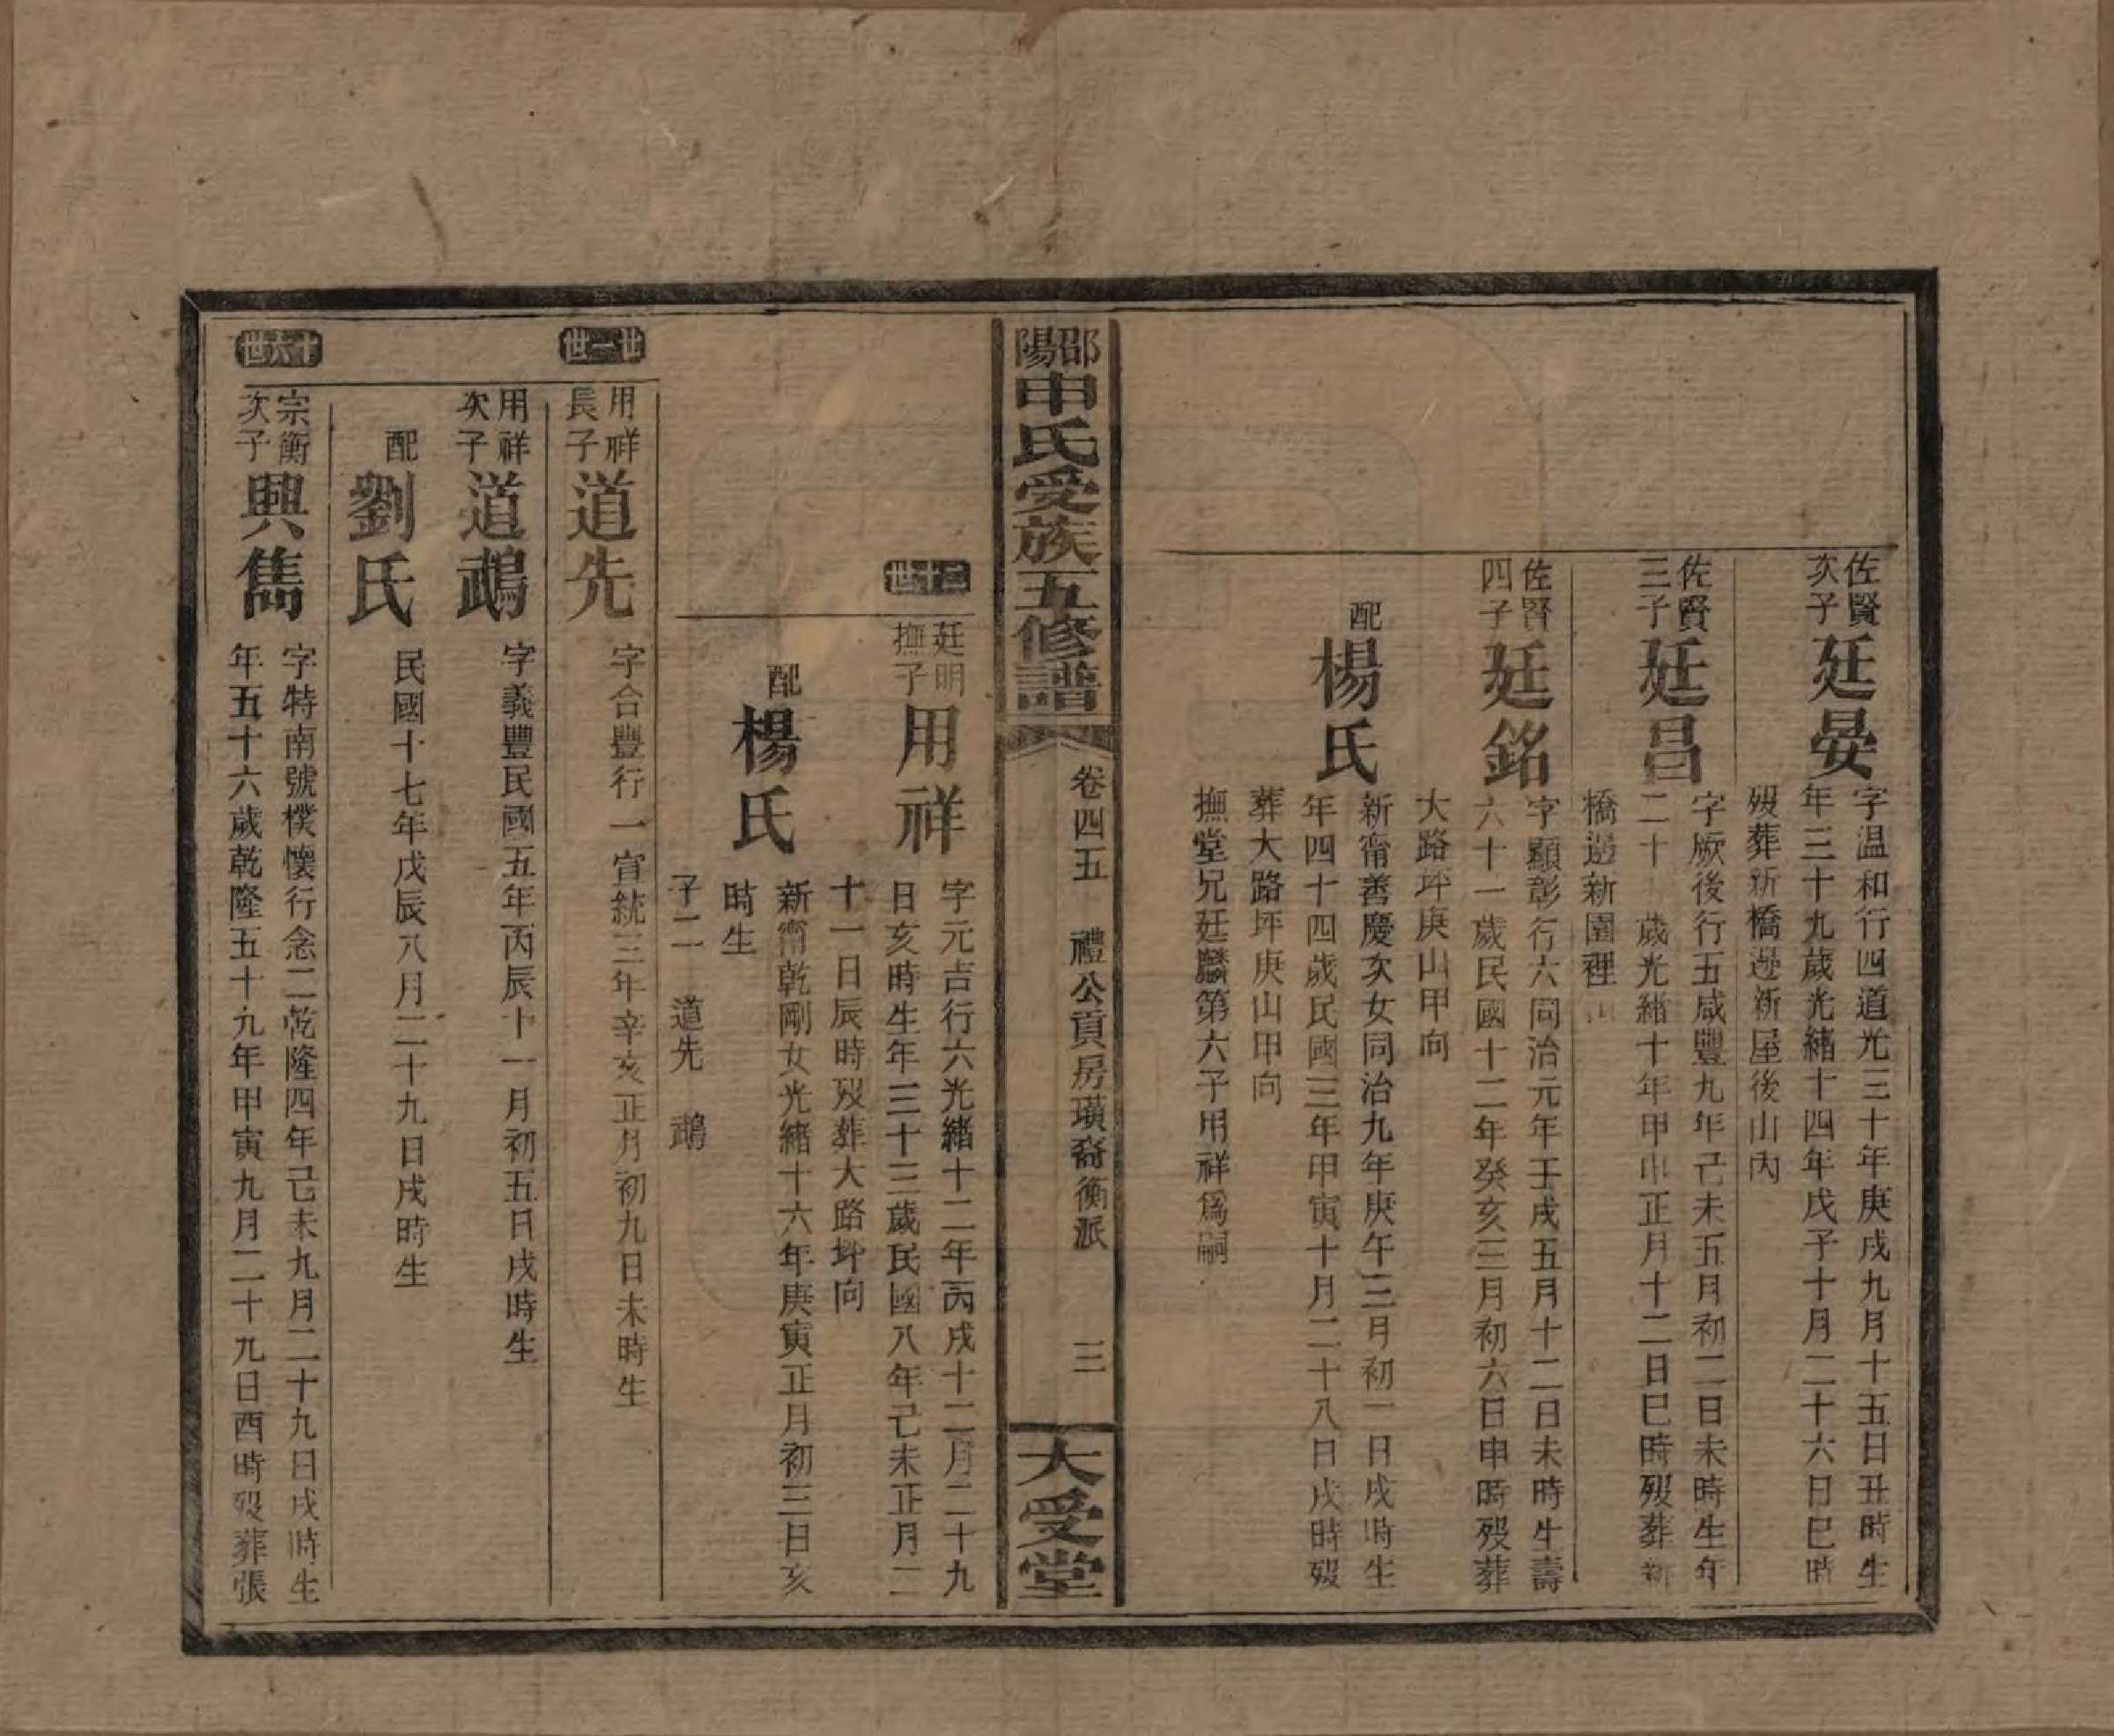 佐賢
次子
廷晏
字温和行四道光三十年庚戌九月十五日丑時生
年三十九歲光緒十四年戊子十月二十六日巳時
殁葬新橋邊新屋後山內
佐賢
三子
廷昌
字厥後行五咸豐九年己未五月初二日未時生年
二十 歲光緒十年甲申正月十二日巳時殁葬新
橋邊新園裡
佐賢
四子
廷銘
字顯彰行六同治元年壬戌五月十二日未時生壽
六十一歲民國十二年癸亥三月初六日申時殁葬
大路坪庚山甲向
配
楊氏
新甯善慶次女同治九年庚午三月初一日戌時生
年四十四歲民國三年甲寅十月二十八日戌時殁
葬大路坪庚山甲向
撫堂兄廷麟第六子用祥爲嗣
邵陽申氏受族五修譜
卷四五 禮公貢房璜裔衡派 三
大受堂
二十世
廷明
撫子
用祥
字元吉行六光緒十二年丙戌十二月二十九
日亥時生年三十三歲民國八年己未正月二
十一日辰時殁葬大路坪向
配
楊氏
新甯乾剛女光緒十六年庚寅正月初三日亥
時生
子二 道先 鵡
廿一世
用祥
長子
道先
字合豐行一宣統三年辛亥正月初九日未時生
用祥
次子
道鵡
字義豐民國五年丙辰十一月初五日戌時生
配
劉氏
民國十七年戊辰八月二十九日戌時生
十六世
宗衡
次子
興雋
字特南號樸懷行念二乾隆四年己未九月二十九日戌時生
年五十六歲乾隆五十九年甲寅九月二十九日酉時殁葬張